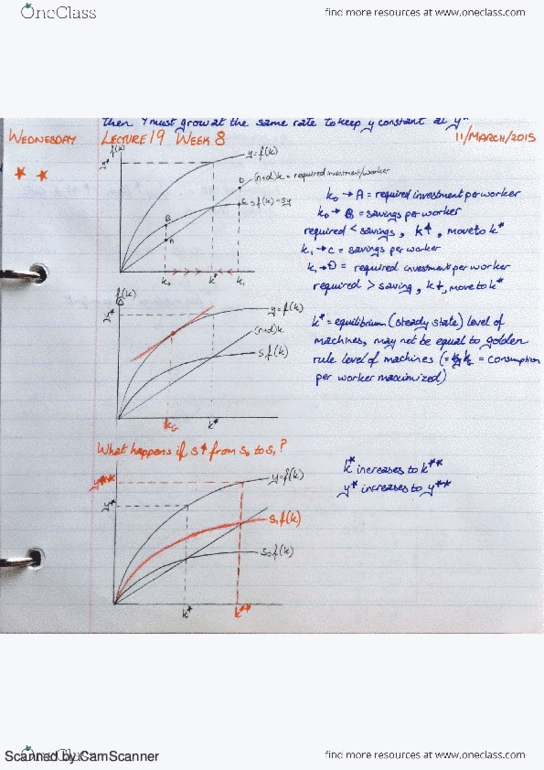 OneClass
find more resources at www.oneclass.com
then Y must grow at the same rate to keep y constant at y*
WEDNESDAY LECTURE 19 WEEK 8 11/MARCH/2015
f(k)
y*
y=f(k)
(n+d)k = required investment/worker
D
C sf(k)=sy
B
A
k₀ k* k₁
k₀ → A = required investment per worker
k₀ → B = savings per worker
required < savings, k↑, move to k*
k₁ → C = savings per worker
k₁ → D = required investment per worker
required > saving, k↓, move to k*
f(k)
y*
y=f(k)
(n+d)k
sf(k)
kG k*
k* = equilibrium (steady state) level of
machines, may not be equal to golden
rule level of machines (= kG = consumption
per worker maximized)
What happens if s↑ from s₀ to s₁?
y**
y*
y=f(k)
s₁f(k)
s₀f(k)
k* k**
k* increases to k**
y* increases to y**
Scanned by CamScanner
OneClass
find more resources at www.oneclass.com